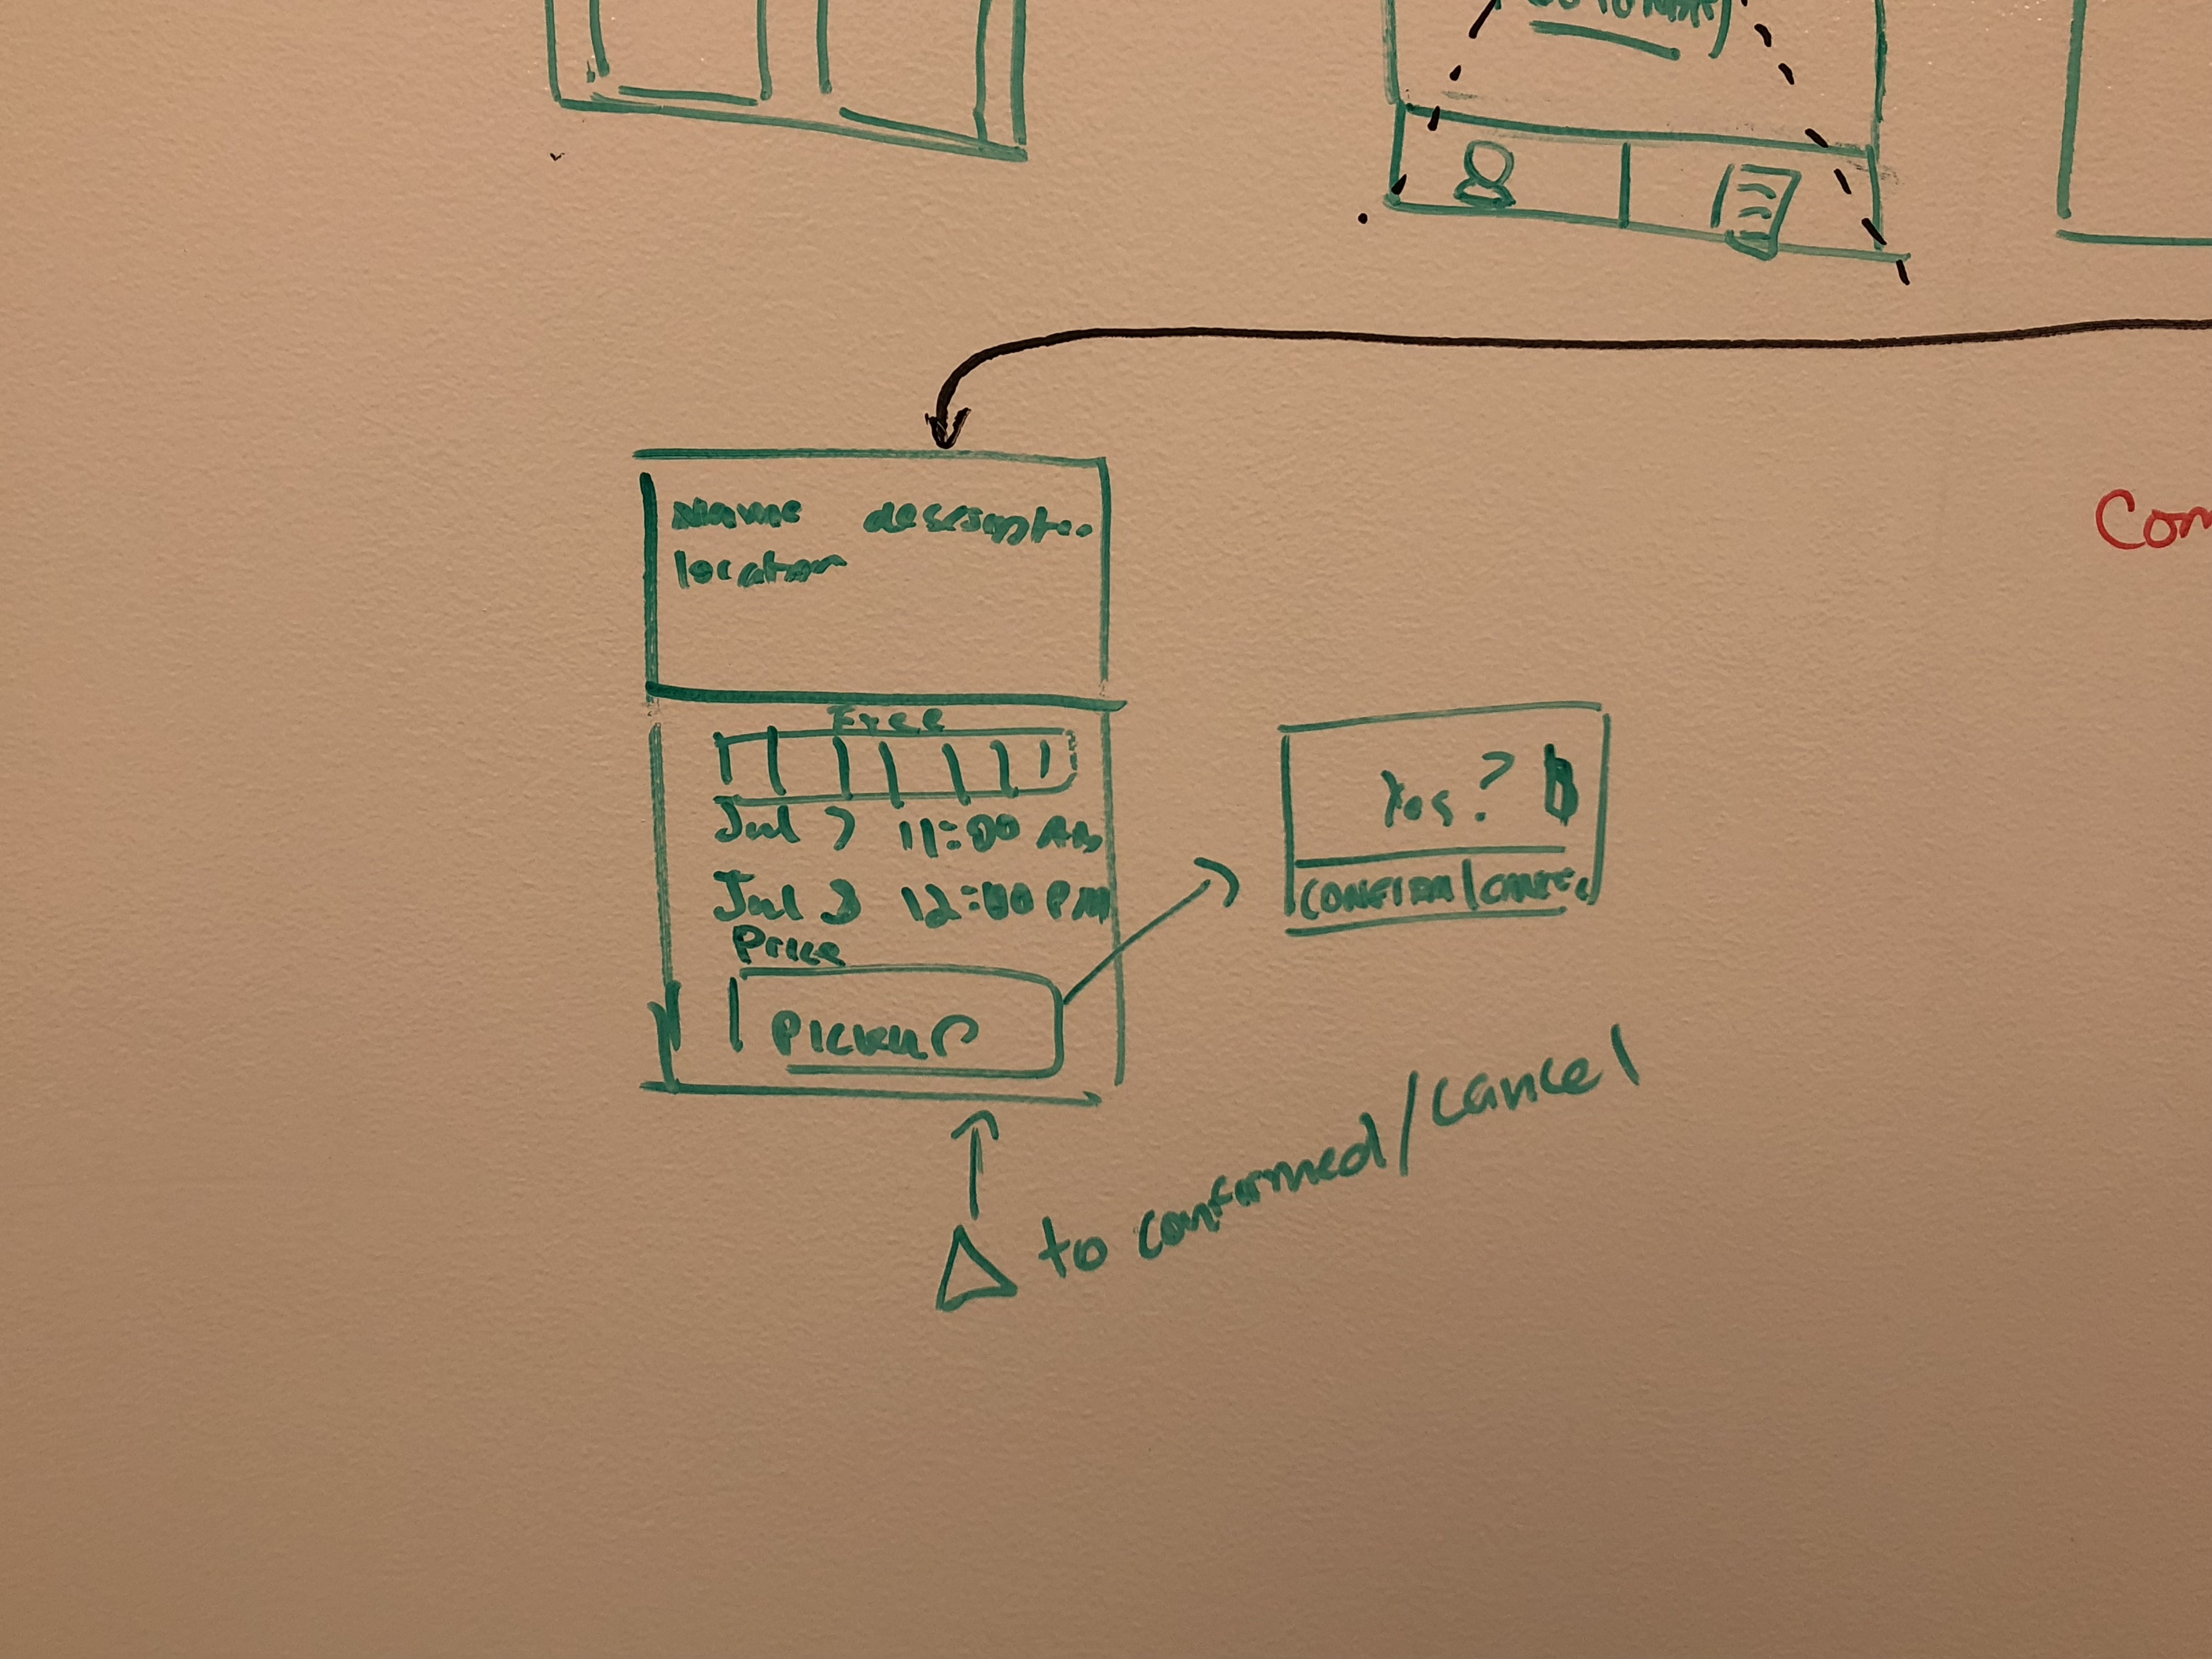 Com
Name descriptio
location
Free
Jul 7 11:00 AM
Jul 8 12:00 PM
Price
PICKUP
Yes?
CONFIRM | CANCEL
Δ to confirmed/cancel